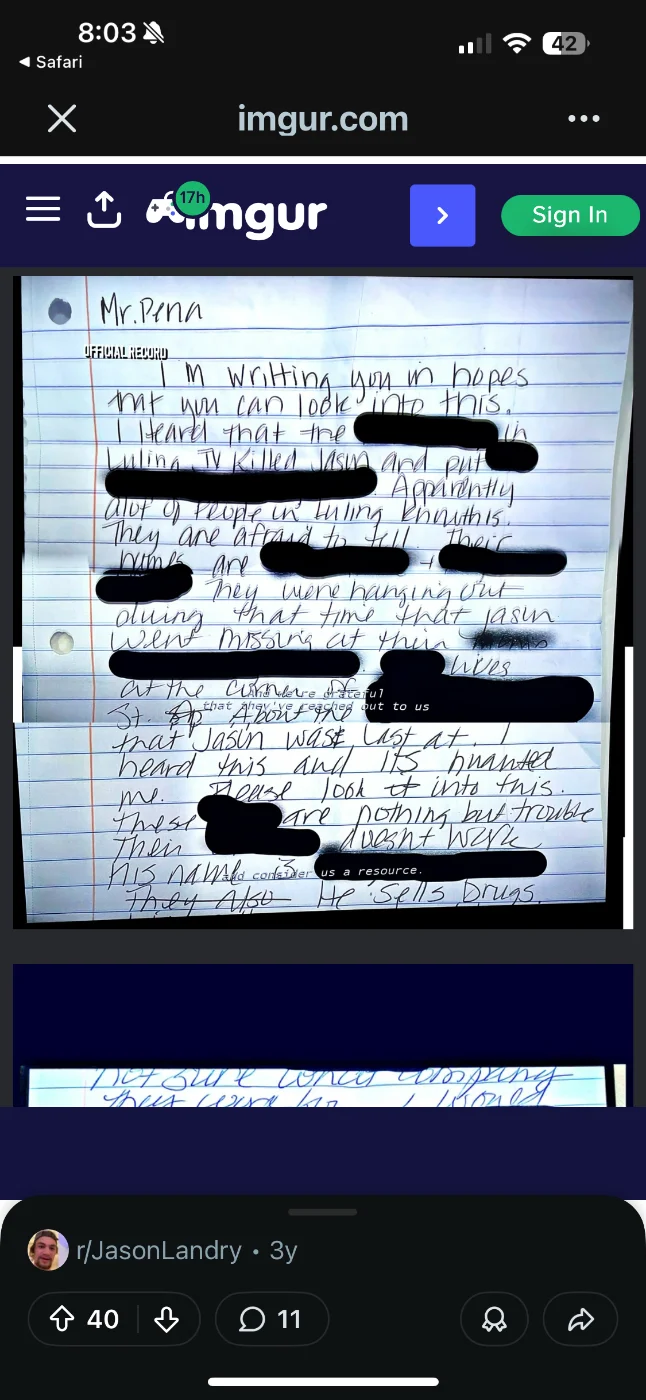 8:03
42
◀ Safari
imgur.com
17h
imgur
Sign In
Mr. Pena
OFFICIAL RECORD
I m writting you in hopes
that you can look into this.
I Heard that the in
Luling TX Killed Jasun and put
Apparently
alot of People in Luling Know this.
They are afraid to tell. Their
names are +
They were hanging out
duing that time that jasun
went missing at their
lives
at the corner of
And we're grateful
that they've reached out to us
St. About the
that Jasun wast last at. I
heard this and its huanted
me. Please look it into this.
These are nothing but trouble
Their doesnt work
His name is
and consider us a resource.
They Also He sells Drugs.
not sure what company
they were for I
r/JasonLandry • 3y
40
11